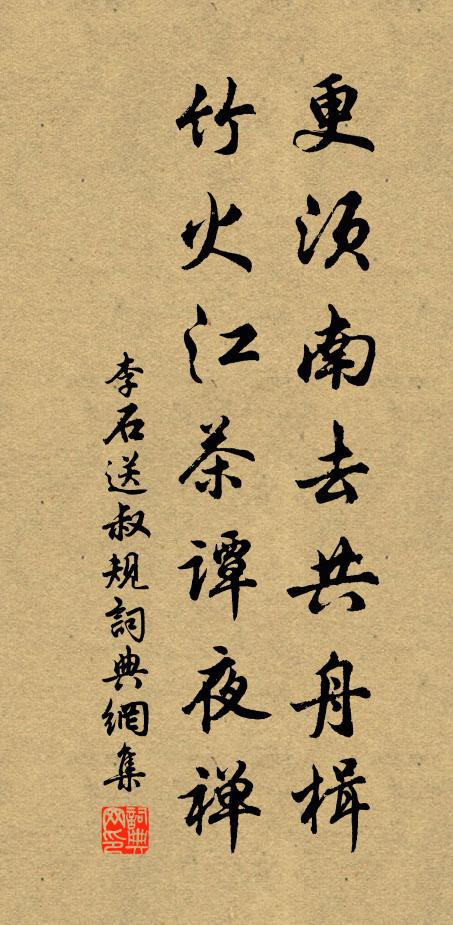 更须南去共舟楫
竹火江茶谭夜禅
李石送叔规詞典網集
詞典网印